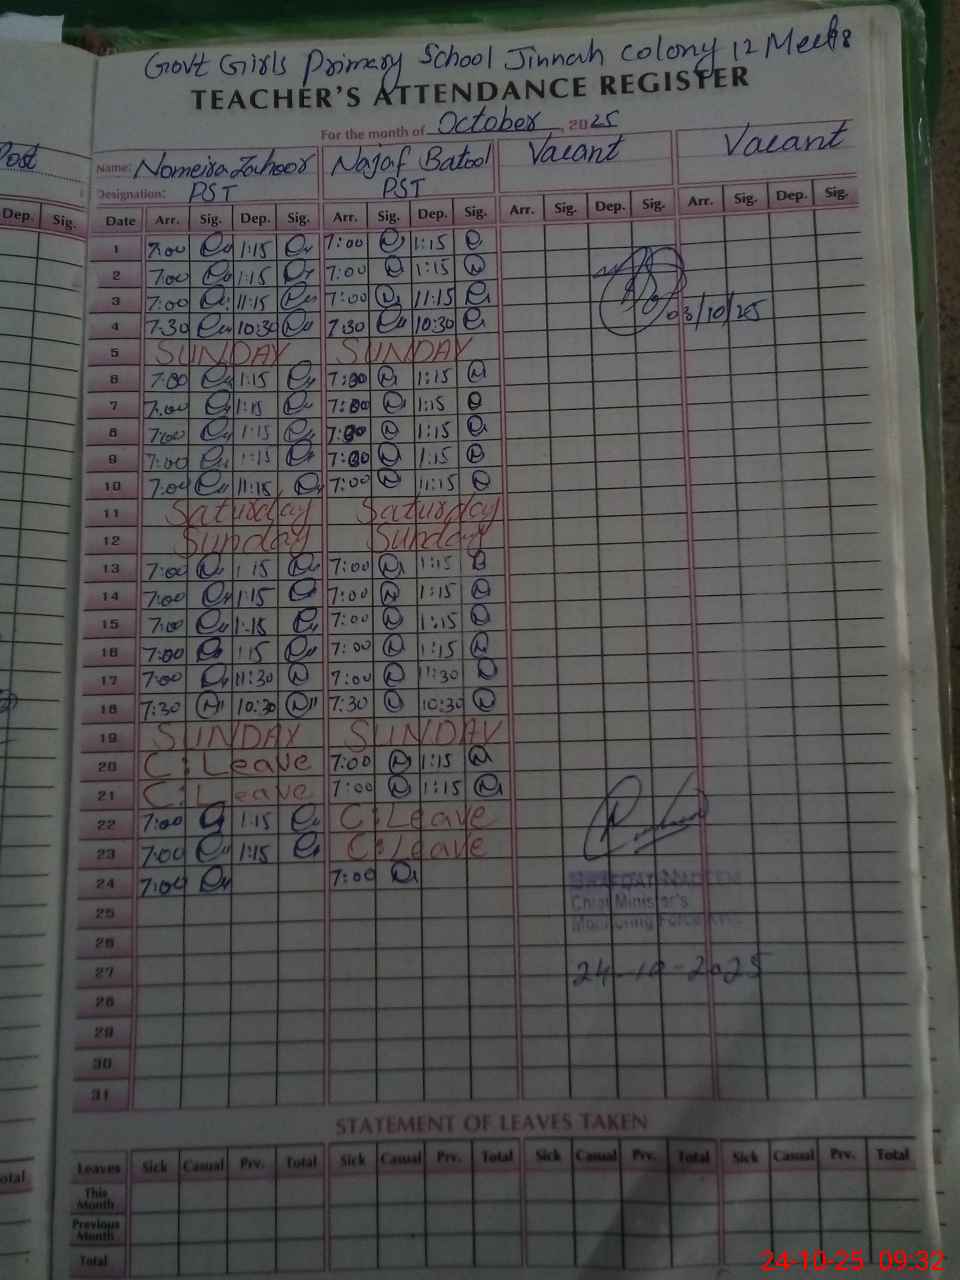 Govt Girls Primary School Jinnah Colony 12 Meels
TEACHER'S ATTENDANCE REGISTER
For the month of October, 2025
Post
Name: Nomeira Zahoor Najaf Batool Vacant Vacant
Designation: PST PST
Dep. Sig. Date Arr. Sig. Dep. Sig. Arr. Sig. Dep. Sig. Arr. Sig. Dep. Sig. Arr. Sig. Dep. Sig.
1 7:00 1:15 7:00 1:15
2 7:00 1:15 7:00 1:15
3 7:00 11:15 7:00 11:15 03/10/25
4 7:30 10:30 7:30 10:30
5 SUNDAY SUNDAY
6 7:00 1:15 7:00 1:15
7 7:00 1:15 7:00 1:15
8 7:00 1:15 7:00 1:15
9 7:00 1:15 7:00 1:15
10 7:00 11:15 7:00 11:15
11 Saturday Saturday
12 Sunday Sunday
13 7:00 1:15 7:00 1:15
14 7:00 1:15 7:00 1:15
15 7:00 1:15 7:00 1:15
16 7:00 1:15 7:00 1:15
17 7:00 11:30 7:00 11:30
18 7:30 10:30 7:30 10:30
19 SUNDAY SUNDAY
20 C:Leave 7:00 1:15
21 C:Leave 7:00 1:15
22 7:00 1:15 C:Leave
23 7:00 1:15 C:Leave
24 7:00 7:00
25 Chief Minister's
26 Monitoring Force
27 24-10-2025
28
29
30
31
STATEMENT OF LEAVES TAKEN
Leaves Sick Casual Prv. Total Sick Casual Prv. Total Sick Casual Prv. Total Sick Casual Prv. Total
This Month
Previous Month
Total
24-10-25 09:32